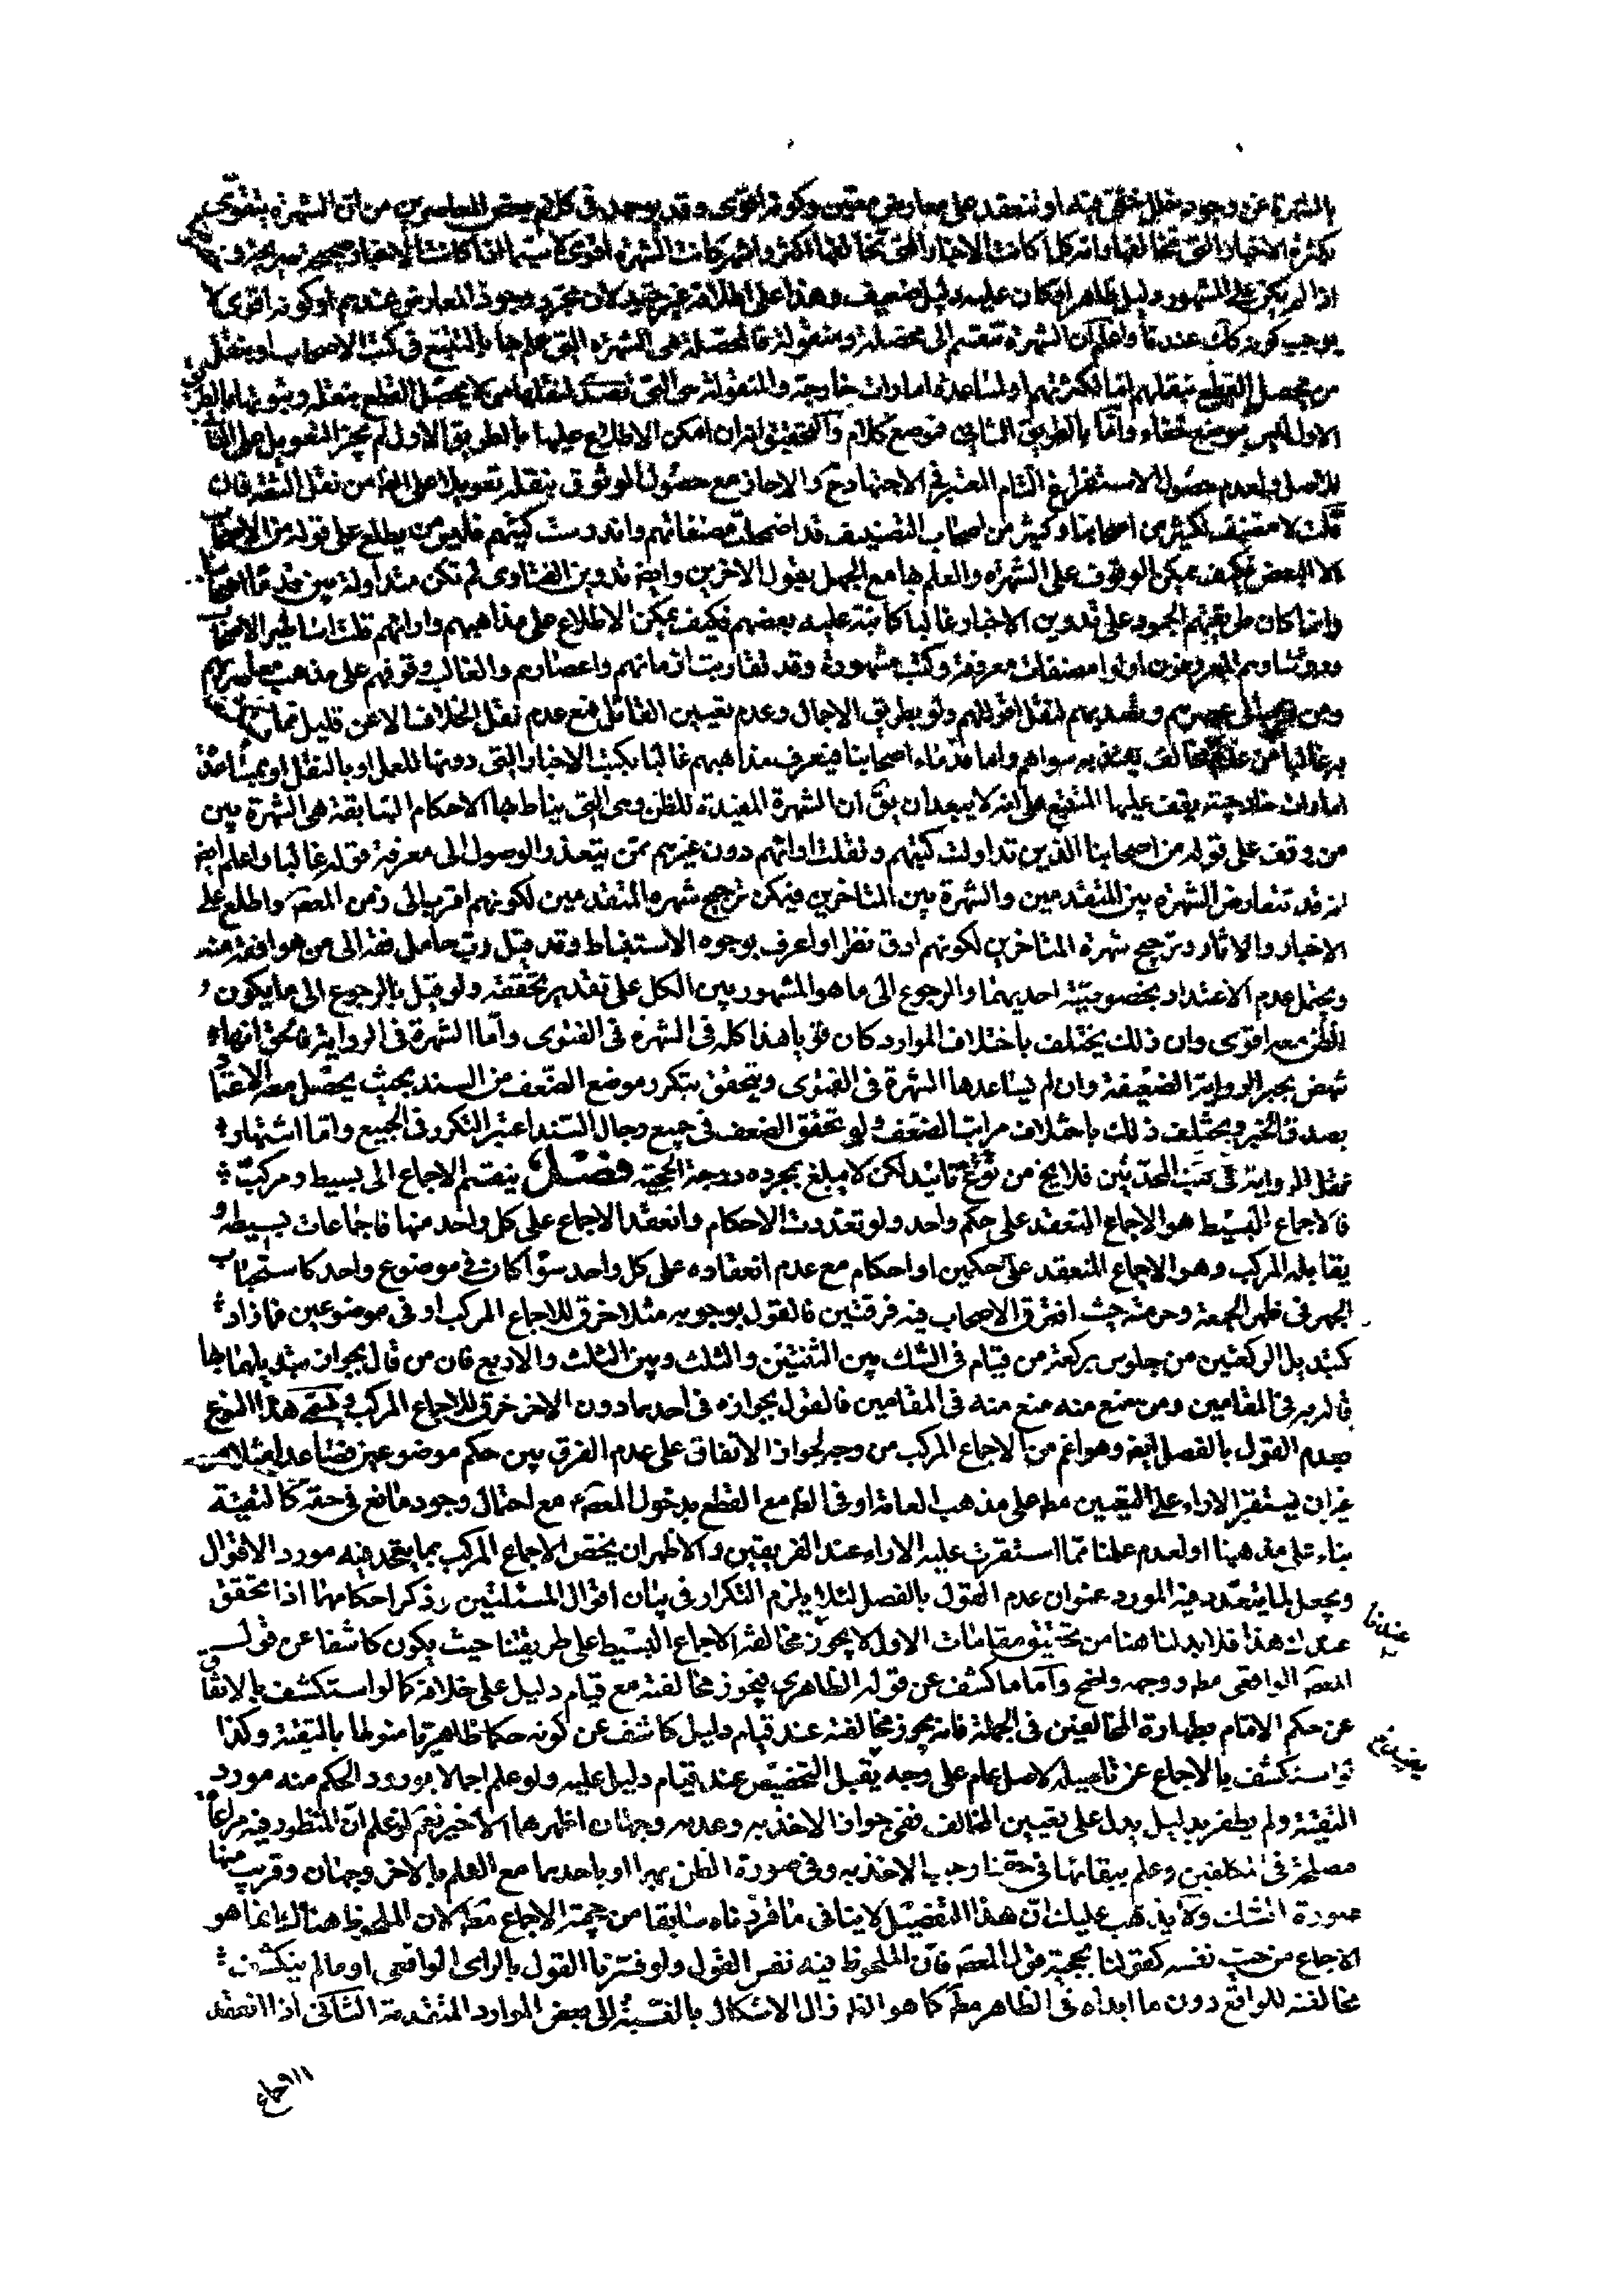 بالشهرة عن وجود خلل خفى فيه او تنعقد على معارض معين وكونه اقوى وقد يوجد فى كلام بعض المعاصرين من ان الشهرة يتقوى
بكثرة الاخبار التى تخالفها وانه كلما كانت الاخبار التى تخالفها اكثر واشهر كانت الشهرة اقوى لا سيما اذا كانت الاخبار صحيحة
اذا لم يكن على المشهور دليل ظاهر او كان عليه دليل ضعيف وهذا على اطلاقه غير جيد لان مجرد وجود المعارض عندهم او كونه اقوى لا
يوجب كونه كك عندنا واعلم ان الشهرة تنقسم الى محصلة ومنقولة فالمحصلة هى الشهرة التى علم بها بالتتبع فى كتب الاصحاب او بنقل
من يحصل القطع بنقلهم اما لكثرتهم او لمساعدة امارات خارجية والمنقولة هى التى تصدى لنقلها من لا يحصل القطع بنقله وثبوتها بالطريق
الاول ليس موضع خفاء واما بالطريق الثانى فموضع كلام والتحقيق انه ان امكن الاطلاع عليها بالطريق الاول لم يجز التعويل على النقل
للاصل ولعدم حصول الاستفراغ التام المعتبر فى الاجتهاد ح والا جاز مع حصول الوثوق بنقله تعويلا على الظن من نقل الثقة فان
قلت لا مصنف لكثير من اصحابنا وكثير من اصحاب التصنيف قد اضمحلت مصنفاتهم واندرست كتبهم فليس من يطلع على قوله من الاصحاب
الا البعض فكيف يمكن الوقوف على الشهرة والعلم بها مع الجهل بقول الاخرين وايضا تدوين الفتاوى لم تكن متداولة بين قدماء اصحابنا
وانما كان طريقتهم الجمود على تدوين الاخبار غالبا كما نبه عليه بعضهم فكيف يمكن الاطلاع على مذاهبهم وارائهم قلت اساطين الاصحاب
ورؤساؤهم المعروفون اولوا مصنفات معروفة وكتب مشهورة وقد تقاربت ازمانهم واعصارهم والغالب وقوفهم على مذهب معاصريهم
ومن عصرهم وتصديهم لنقل اقوالهم ولو بطريق الاجمال وعدم تعيين القائل فمع عدم نقل الخلاف الا عن قليل
به غالبا من عدم مخالف يعتد به سواهم واما قدماء اصحابنا فيعرف مذاهبهم غالبا بكتب الاخبار التى دونها للعمل او بالنقل او بمساعدة
امارات خارجية يقف عليها المتتبع على انه لا يبعد ان يق ان الشهرة المفيدة للظن وهى التى يناط بها الاحكام السابقة هى الشهرة بين
من وقف على قوله من اصحابنا الذين تداولت كتبهم ونقلت ارائهم دون غيرهم ممن يتعذر الوصول الى معرفة قوله غالبا واعلم ايضا
انه قد تتعارض الشهرة بين المتقدمين والشهرة بين المتاخرين فيمكن ترجيح شهرة المتقدمين لكونهم اقرب الى زمن المعصوم واطلع على
الاخبار والاثار وترجيح شهرة المتاخرين لكونهم ادق نظرا واعرف بوجوه الاستنباط وقد قيل رب حامل فقه الى من هو افقه منه
ويحتمل عدم الاعتداد بخصوصية احديهما والرجوع الى ما هو المشهور بين الكل على تقدير تحققه ولو قيل بالرجوع الى ما يكون
الظن معه اقوى وان ذلك يختلف باختلاف الموارد كان قويا هذا كله فى الشهرة فى الفتوى واما الشهرة فى الرواية فالحق انها
تنهض بجبر الرواية الضعيفة وان لم يساعدها الشهرة فى الفتوى ويتحقق بتكرر موضع الضعف من السند بحيث يحصل معه الاعتماد
بصدق الخبر ويختلف ذلك باختلاف مراتب الضعف ولو تحقق الضعف فى جميع رجال السند اعتبر التكرر فى الجميع واما اشتهار
نقل الرواية فى كتب المحدثين فلا يخ من نوع تائيد لكن لا يبلغ بمجرده درجة الحجية فصل ينقسم الاجماع الى بسيط ومركب
فالاجماع البسيط هو الاجماع المنعقد على حكم واحد ولو تعددت الاحكام وانعقد الاجماع على كل واحد منها فاجماعات بسيطة و
يقابله المركب وهو الاجماع المنعقد على حكمين او احكام مع عدم انعقاده على كل واحد سواء كان فى موضوع واحد كاستحباب
الجهر فى ظهر الجمعة وحرمته حيث افترق الاصحاب فيه فرقتين فالقول بوجوبه مثلا خرق للاجماع المركب او فى موضوعين فما زاد
كتبديل الركعتين من جلوس بركعة من قيام فى الشك بين الثنتين والثلث وبين الثلث والاربع فان من قال بجواز تبديلهما بها
قال به فى المقامين ومن منع منه منع منه فى المقامين فالقول بجوازه فى احدهما دون الاخر خرق للاجماع المركب ويسمى هذا النوع
بعدم القول بالفصل ايضا وهو اعم من الاجماع المركب من وجه لجواز الاتفاق على عدم الفرق بين حكم موضوعين فصاعدا مثلا من
غير ان يستقر الاراء على التعيين مط على مذهب العامة او فى الظ مع القطع بدخول المعصوم مع احتمال وجود مانع فى حقه كالتقية
بناء على مذهبنا او لعدم علمنا بما استقرت عليه الاراء عند الفريقين والاظهر ان يخص الاجماع المركب بما يتحد فيه مورد الاقوال
ويجعل لما يتعدد فيه المورد عنوان عدم القول بالفصل لئلا يلزم التكرار فى بيان اقوال المسئلتين وذكر احكامهما اذا تحقق
عندك هذا فلا بد لنا هنا من تحقيق مقامات الاول لا يجوز مخالفة الاجماع البسيط على طريقتنا حيث يكون كاشفا عن قول
المعصوم الواقعى مط ووجهه واضح واما ما كشف عن قوله الظاهرى فيجوز مخالفته مع قيام دليل على خلافه كما لو استكشف بالاتفاق
عن حكم الامام بطهارة المخالفين فى الجملة فانه يجوز مخالفته عند قيام دليل كاشف عن كونه حكما ظاهريا منوطا بالتقية وكذا
لو استكشف بالاجماع عن تاصيله لاصل عام على وجه يقبل التخصيص عند قيام دليل عليه ولو علم اجمالا بورود الحكم منه مورد
التقية ولم يظفر بدليل يدل على تعيين المخالف ففى جواز الاخذ به وعدمه وجهان اظهرهما الاخير نعم لو علم ان المنظور فيه مراعاة
مصلحة فى المكلفين وعلم ببقائها فى حقنا وجب الاخذ به وفى صورة الظن بهما او باحدهما مع العلم بالاخر وجهان وقريب منها
صورة الشك ولا يذهب عليك ان هذا التفصيل لا ينافى ما قررناه سابقا من حجية الاجماع مط لان الملحوظ هناك انما هو
الاجماع من حيث نفسه كقولنا بحجية قول المعصوم فان الملحوظ فيه نفس القول ولو فسرنا القول بالراى الواقعى او ما لم ينكشف
مخالفته للواقع دون ما ابداه فى الظاهر مط كما هو الظ زال الاشكال بالنسبة الى بعض الموارد المتقدمة الثانى اذا انعقد